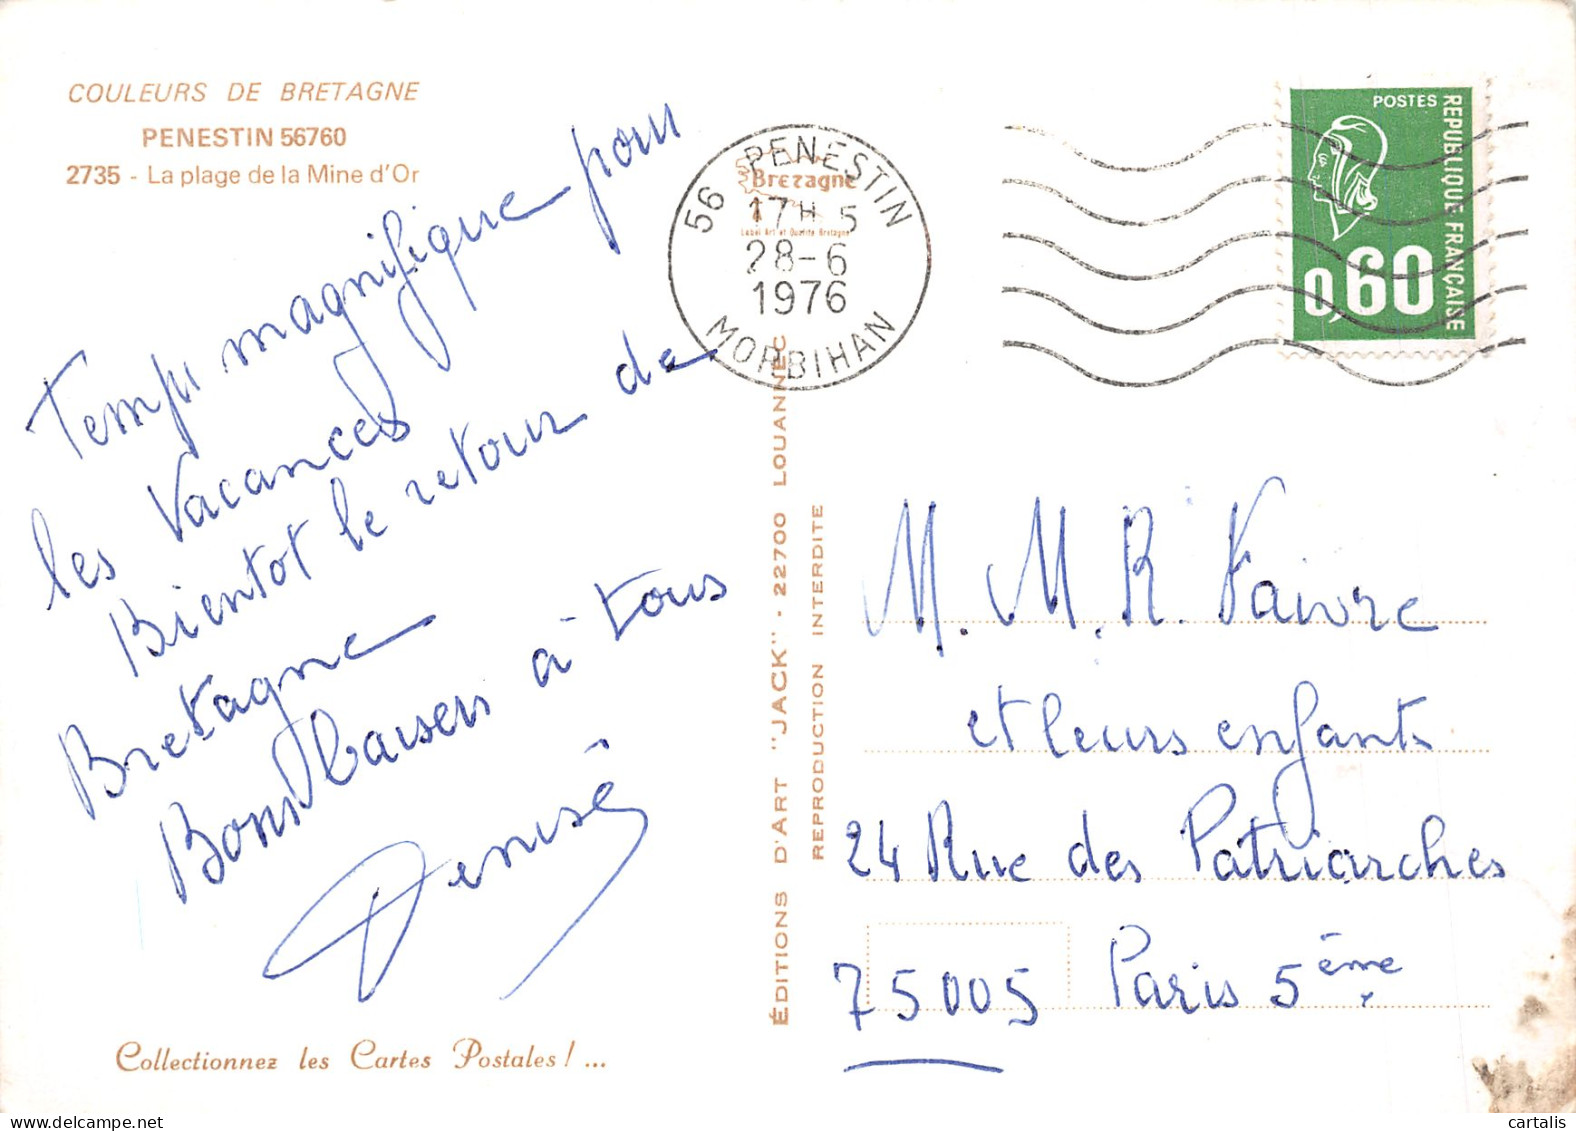 COULEURS DE BRETAGNE
PENESTIN 56760
2735 - La plage de la Mine d'Or
Temps magnifique pour
les vacances
Bientot le retour de
Bretagne
Bons baisers à tous
Denise
Collectionnez les Cartes Postales ! ...
56 PENESTIN
Bretagne
17H 5
Label Art et Qualité Bretagne
28-6
1976
MORBIHAN
ÉDITIONS D'ART "JACK" - 22700 LOUANNEC
REPRODUCTION INTERDITE
POSTES
REPUBLIQUE FRANÇAISE
0,60
M. M. R. Faivre
et leurs enfants
24 Rue des Patriarches
75005 Paris 5ème
cartalis